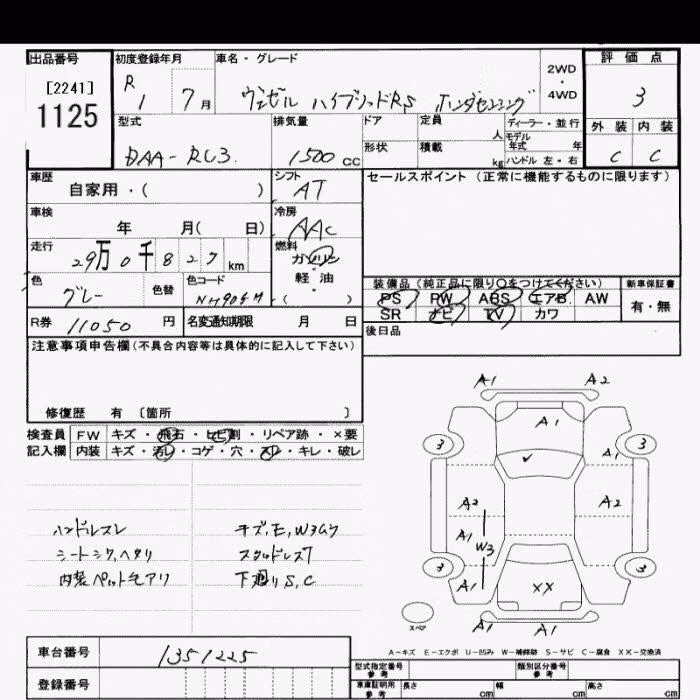 出品番号
[2241]
1125
初度登録年月
R 1 7月
車名・グレード
ヴェゼル ハイブリッドRS ホンダセンシング
2WD
・
4WD
評価点
3
外装 内装
C C
型式
DAA-RU3
排気量
1500 cc
ドア
形状
定員 人
積載 kg
ディーラー・並行
モデル年式 年
ハンドル 左・右
車歴
自家用・( )
シフト
AT
セールスポイント (正常に機能するものに限ります)
車検
年 月( 日)
冷房
AAC
走行
29万0千827 km
燃料
ガソリン
・
軽油
・
( )
色
グレー
色替
色コード
NH904M
装備品 (純正品に限り○をつけてください)
PS PW ABS エアB AW
SR ナビ TV カワ
新車保証書
有・無
R券 11050 円
名変通知期限 月 日
後日品
注意事項申告欄(不具合内容等は具体的に記入して下さい)
修復歴 有 〔箇所 〕
検査員
記入欄
FW キズ・飛石・ヒビ割・リペア跡・×要
内装 キズ・汚レ・コゲ・穴・スレ・キレ・破レ
ハンドルスレ
シートシワ,ヘタリ
内装ペット毛アリ
キズ,E,W3ムラ
スタッドレスT
下廻りS,C
A1 A2
A1
3 3
A1
A2 A2
A1
W3
3 3
A1
XX
A1
A1 A1
スペア
A-キズ E-エクボ U-凹み W-補修跡 S-サビ C-腐食 XX-交換済
車台番号
1351225
登録番号
型式指定番号
参考
類別区分番号
参考
車庫証明用
参考
長さ cm
幅 cm
高さ cm